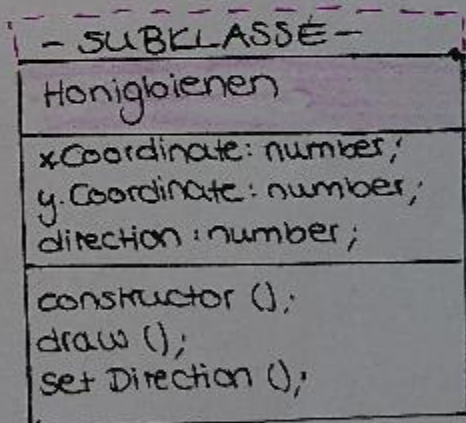 - SUBKLASSE -
Honigbienen
xCoordinate: number;
y.Coordinate: number;
direction: number;
constructor ();
draw ();
set Direction ();